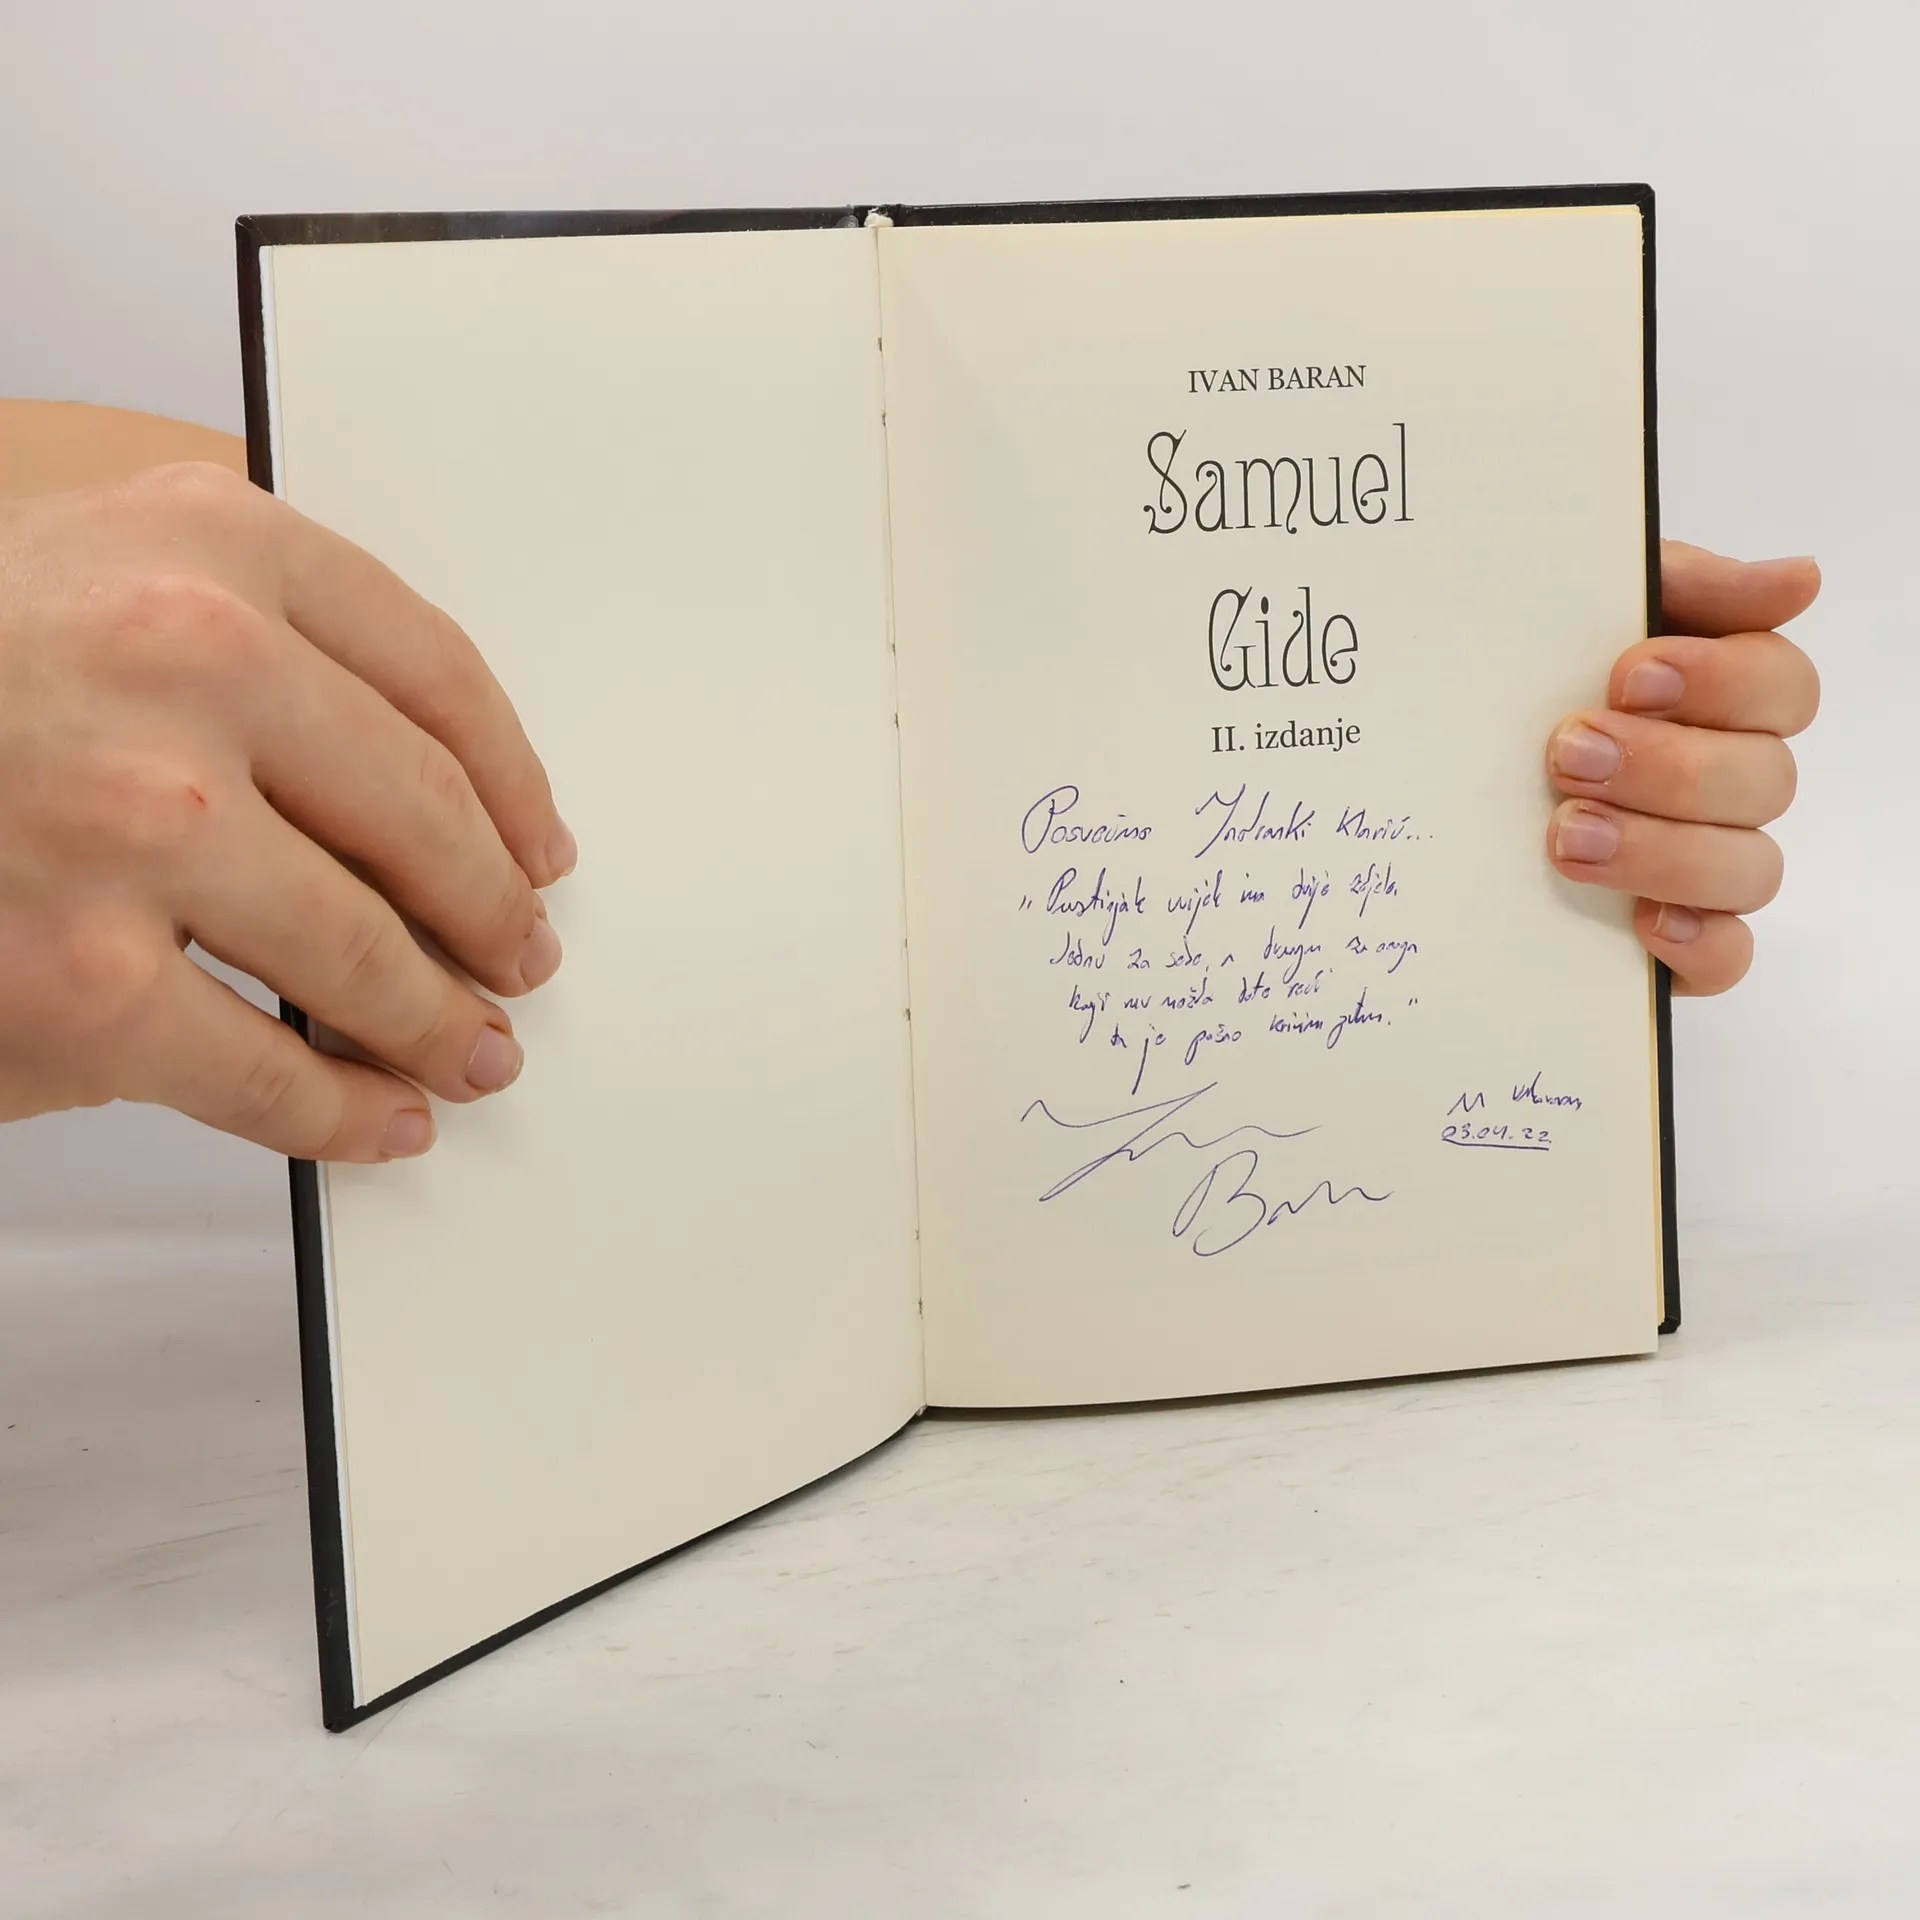 IVAN BARAN
Samuel
Gide
II. izdanje
Posvećeno Indranki Klarić...
"Pustinjak uvijek ima dvije zdjele.
Jednu za sebe, a drugu za onoga
koji mu možda dođe reći
da je pošao krivim putem."
Ivan
Baran
U Vukovaru,
03.04.22.